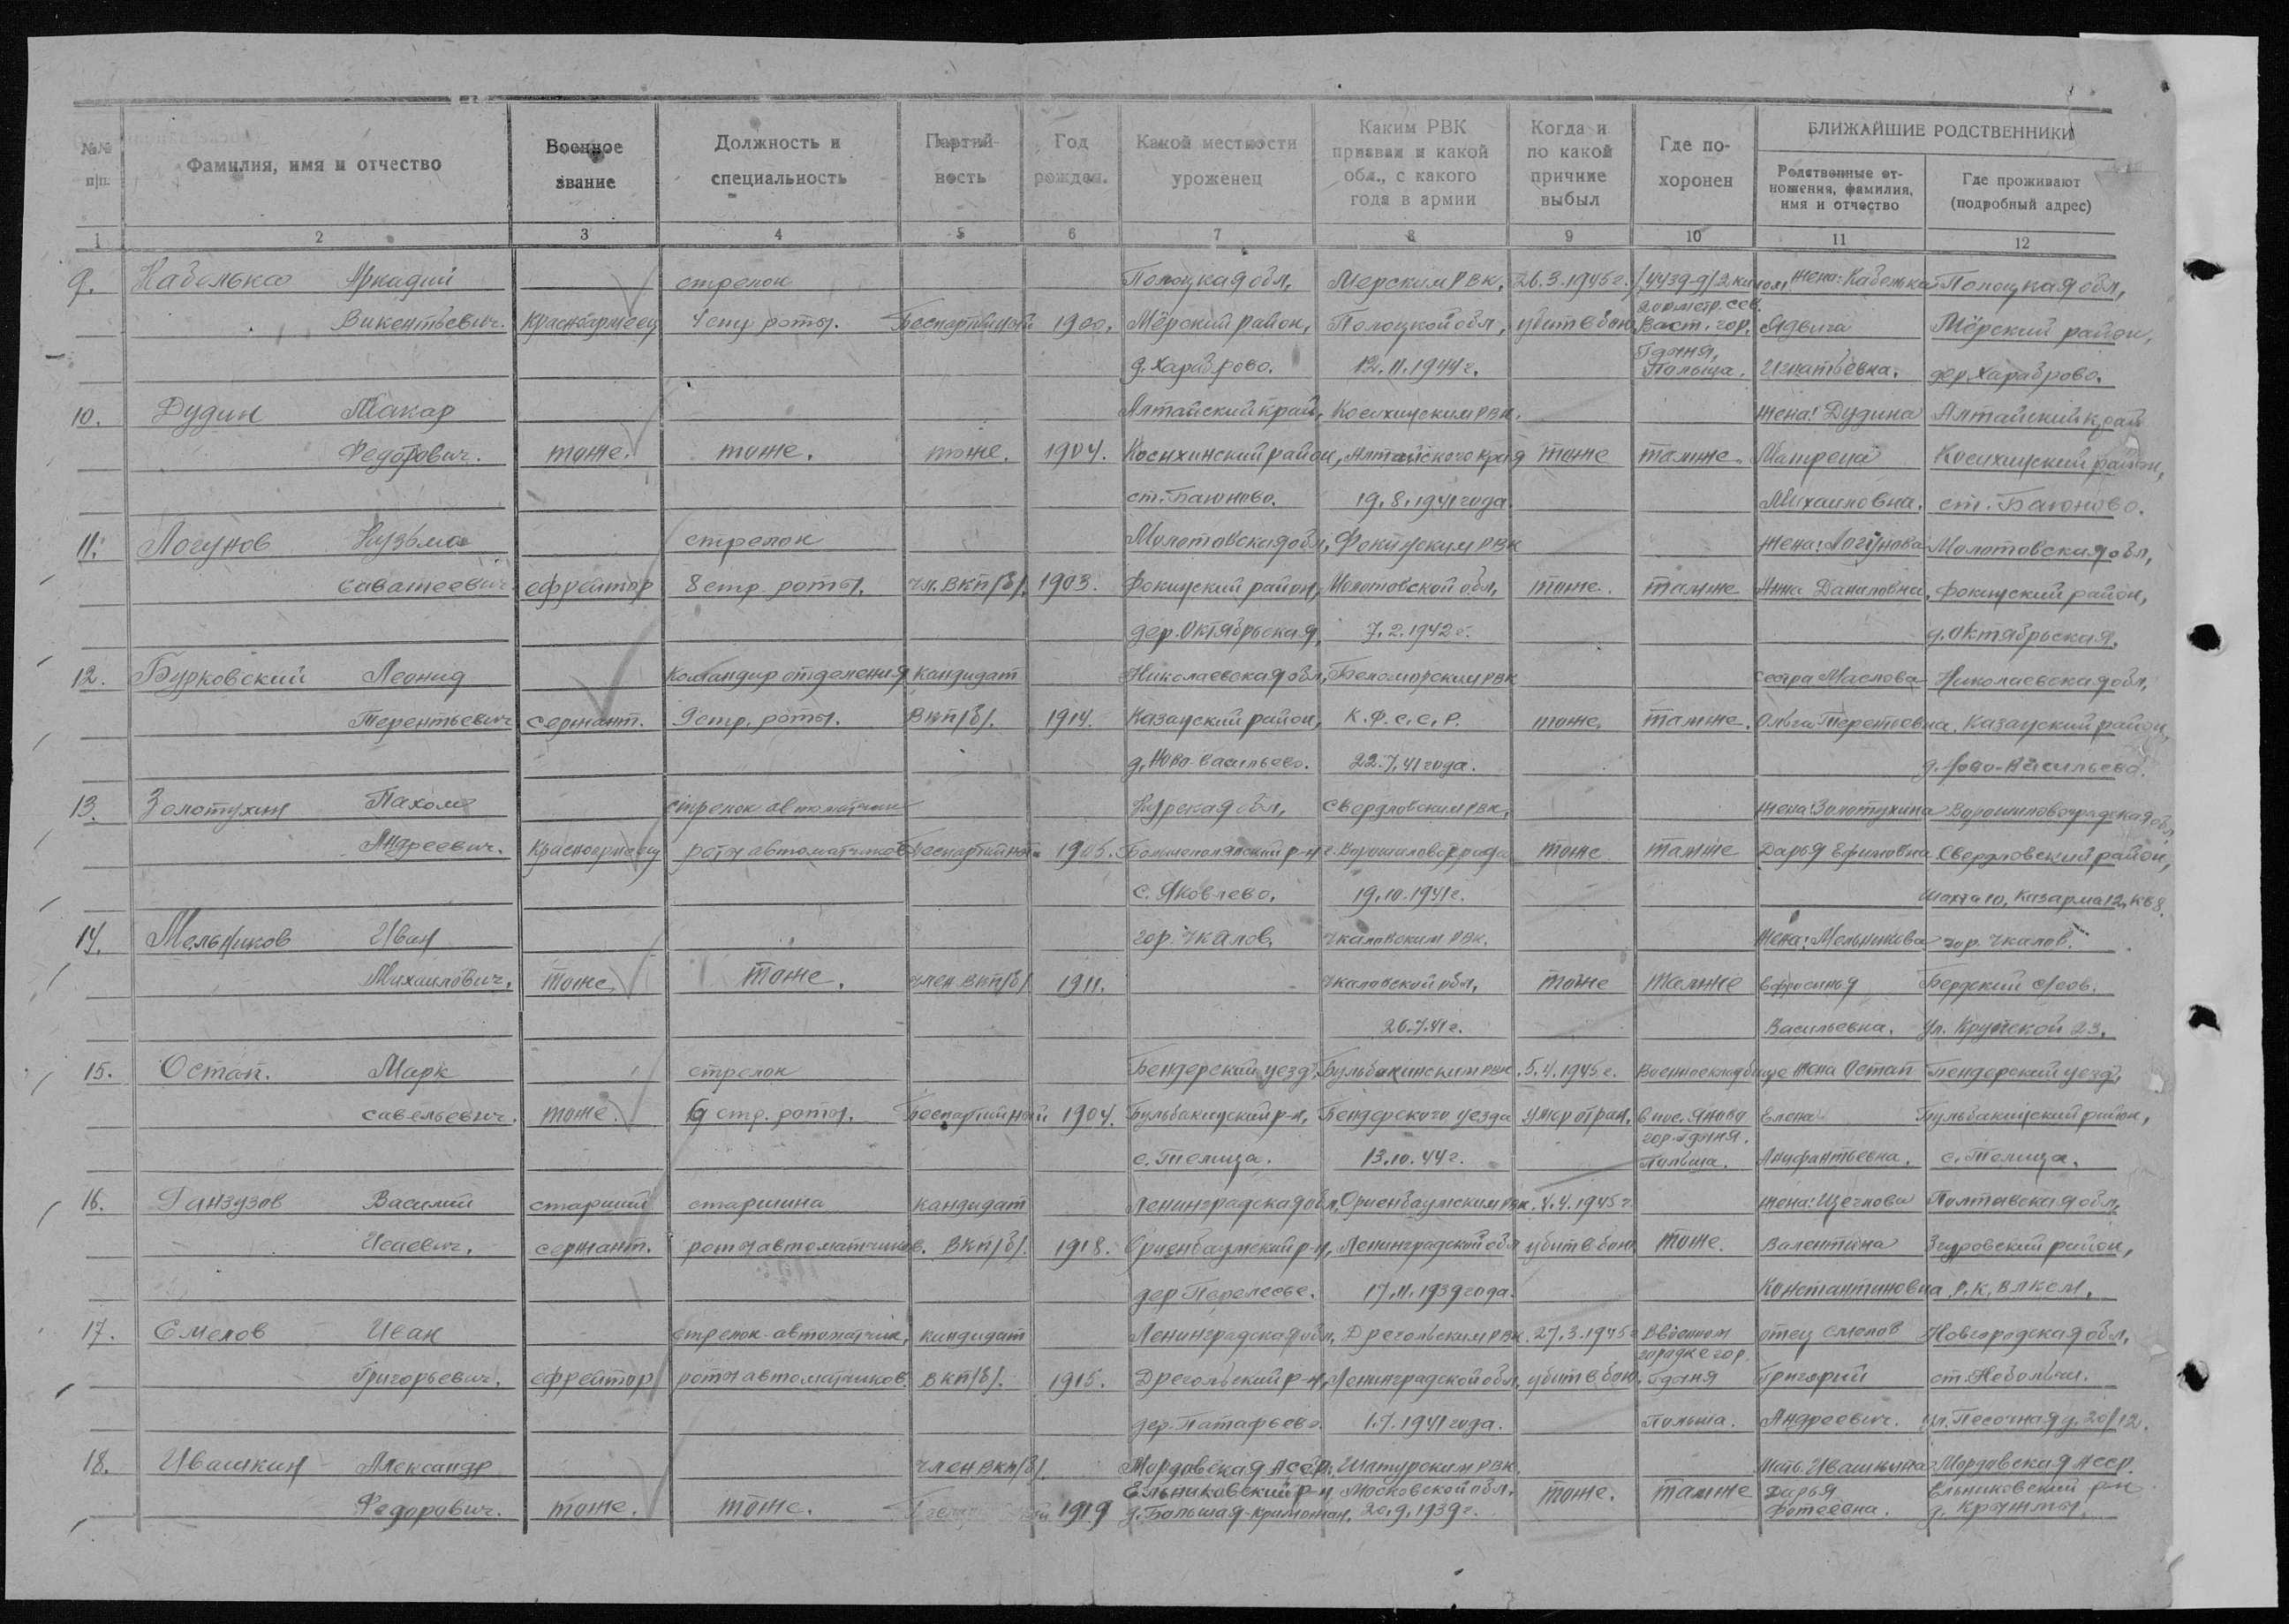 №№ п/п.
Фамилия, имя и отчество
Военное звание
Должность и специальность
Партийность
Год рожден.
Какой местности уроженец
Каким РВК призван и какой обл., с какого года в армии
Когда и по какой причине выбыл
Где похоронен
БЛИЖАЙШИЕ РОДСТВЕННИКИ
Родственные отношения, фамилия, имя и отчество
Где проживают (подробный адрес)
1 2 3 4 5 6 7 8 9 10 11 12
9. Кабелько Аркадий стрелок Полоцкая обл, Мерским РВК, 26.3.1945г. жена: Кабелько Полоцкая обл,
Викентьевич. Красноармеец 4 стр роты. Беспартийный 1900. Мёрский район, Полоцкой обл, убит в бою Вост. гор. Ядвига Мёрский район,
д. Храброво. 12.11.1944г. Гдыня, Польша. Игнатьевна. дер. Храброво.
10. Дудин Макар Алтайский край, Косихинским РВК. жена: Дудина Алтайский край
Федорович. тоже. тоже. тоже. 1904. Косихинский район, Алтайского края тоже тамже Матрена Косихинский район,
ст. Баюново. 19.8.1941 года. Михаиловна. ст. Баюново.
11. Логунов Кузьма стрелок Молотовская обл, Фокинским РВК жена: Логунова Молотовская обл,
Саватеевич ефрейтор 8 стр роты. чл. ВКП/б/. 1903. Фокинский район, Молотовской обл, тоже. тамже Анна Даниловна, Фокинский район,
дер. Октябрьская, 7.2.1942г. д. Октябрьская.
12. Бурковский Леонид Командир отделения кандидат Николаевская обл, Беломорским РВК сестра Маслова Николаевская обл,
Терентьевич сержант. 9 стр. роты. ВКП/б/. 1914. Казанский район, К.Ф.С.С.Р. тоже. тамже. Ольга Терентевна. Казанский район,
д. Ново-Васильево. 22.7.41 года. д. Ново-Васильево.
13. Золотухин Пахом стрелок автоматчик Курская обл, Свердловским РВК, жена: Золотухина Ворошиловоградская обл
Андреевич. Красноармеец роты автоматчиков Беспартийный 1905. Большеполянский р-н г. Ворошиловограда тоже тамже Дарья Ефимовна Свердловский район,
с. Яковлево. 19.10.1941г. шахта 10, казарма 12, кв 8.
14. Мельников Иван гор. Чкалов, Чкаловским РВК. жена: Мельникова гор. Чкалов.
Михаилович. тоже. тоже. член ВКП/б/ 1911. Чкаловской обл, тоже тамже Ефросинья Бердский с/сов.
20.7.41г. Васильевна. ул. Крупской 23.
15. Остап. Марк стрелок Бендерский уезд, Бульбакинским РВК. 5.4.1945г. Военное кладбище жена Остап Бендерский уезд,
Савельевич. тоже. 9 стр. роты. Беспартийный 1904. Бульбакинский р-н, Бендерского уезда умер от ран, в пос. Яново Елена Бульбакинский район,
с. Телица. 13.10.44г. гор. Гдыня. Польша. с. Телица.
16. Ганзузов Василий старший старшина кандидат Ленинградская обл, Ориенбаумским РВК. 4.4.1945г жена: Щеглова Полтавская обл,
Исаевич. сержант. роты автоматчиков. ВКП/б/. 1918. Ориенбаумский р-н, Ленинградской обл убит в бою тоже. Валентина Згуровский район,
дер Перелесье. 17.11.1939 года. Константиновна Р.К. ВЛКСМ.
17. Смелов Иван стрелок-автоматчик, кандидат Ленинградская обл, Дрегольским РВК. 27.3.1945г В военном отец Смелов Новгородская обл,
Григорьевич. ефрейтор роты автоматчиков. ВКП/б/. 1915. Дрегольский р-н, Ленинградской обл. убит в бою. городке гор. Гдыня Григорий ст. Неболчи.
дер. 1.7.1941 года. Польша. Андреевич. ул. Песочная д. 20/12.
18. Ивашкин Александр член ВКП/б/. Мордовская АССР. Шатурским РВК. Мать Ивашкина Мордовская АССР.
Федорович. тоже. тоже. 1919 Ельниковский р-н Московской обл. тоже. тамже Дарья Ельниковский рн
20.9.1939г. Фотеевна.